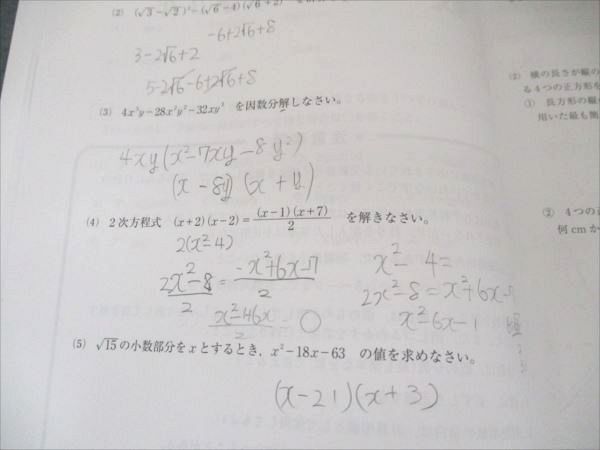 (2) (√3−√2)²−(√6−4)(√6+2)
-6+2√6+8
3-2√6+2
5-2√6-6+2√6+8
(3) 4x³y−28x²y²−32xy³ を因数分解しなさい。
4xy(x²-7xy-8y²)
(x-8y)(x+y)
(4) 2次方程式 (x+2)(x−2)=(x−1)(x+7)/2 を解きなさい。
2(x²-4)
(2x²-8)/2=(-x²+6x-7)/2
x²-4=
2x²-8=x²+6x-
x²-6x-1
(5) √15の小数部分をxとするとき，x²−18x−63 の値を求めなさい。
(x-21)(x+3)
(2) 横の長さが縦の
る4つの正方形を
① 長方形の縦
用いた最も簡
② 4つの正
何cmか